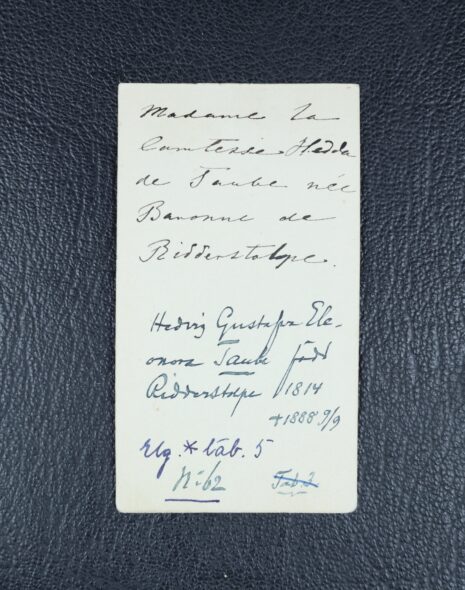 Madame la
Comtesse Hedda
de Taube née
Baronne de
Ridderstolpe.
Hedvig Gustafva Ele-
onora Taube född
Ridderstolpe 1814
+1888 9/9
Elg. * tab. 5
N:62
Tab. 2